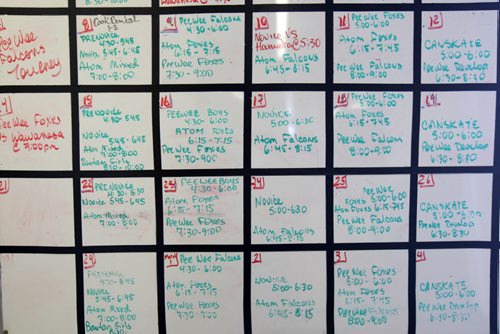 Pee Wee
Falcons
Tourney
8
Cook Rental
PreNovice
4:30-5:45
Novice 5:45-6:45
Atom Mixed
7:00-8:00
9
PeeWee Falcons
4:30-6:00
Atom Foxes
6:15-7:15
PeeWee Foxes
7:30-9:00
10
Novice vs
@5:30
Atom Falcons
6:45-8:15
11
PeeWee Foxes
5:00-6:00
Atom Foxes
6:15-7:45
PeeWee Falcons
8:00-9:00
12
CANSKATE
5:00-6:00
PeeWee Develop
6:30-8:30
14
Pee Wee Foxes
vs Wawanesa
@ 7:00pm
15
PreNovice
4:30-5:45
Novice
5:45-6:45
Atom Mixed
7:00-8:00
Bantam Girls
8:30-10:00
16
PeeWee Boys
4:30-6:00
ATOM FOXES
6:15-7:15
PeeWee Foxes
7:30-9:00
17
NOVICE
5:00-6:30
Atom Falcons
6:45-8:15
18
PeeWee Foxes
5:00-6:00
Atom Foxes
6:15-7:45
PeeWee Falcons
8:00-9:00
19
CANSKATE
5:00-6:00
PeeWee Develop
6:30-8:30
21
22
PreNovice
4:30-5:30
Novice 5:45-6:45
Atom Mixed
7:00-8:00
23
PeeWee Boys
4:30-6:00
Atom Foxes
6:15-7:15
PeeWee Foxes
7:30-9:00
24
Novice
5:00-6:30
Atom Falcons
6:45-8:15
25
PeeWee
Foxes 5:00-6:00
Atom Foxes 6:15-7:45
PeeWee Falcons
8:00-9:00
26
CANSKATE
5:00-6:00
PeeWee Develop
6:30-8:30
29
PreNovice
4:30-5:45
Novice
5:45-6:45
Atom Mixed
7:00-8:00
Bantam Girls
1
Pee Wee Falcons
4:30-6:00
Atom Foxes
6:15-7:15
PeeWee Foxes
7:30-9:00
2
NOVICE
5:00-6:30
Atom Falcons
6:45-8:15
3
PeeWee Foxes
5:00-6:00
Atom Foxes
6:15-7:45
PeeWee Falcons
8:00-9:00
4
CANSKATE
5:00-6:00
PeeWee Develop
6:30-8:30